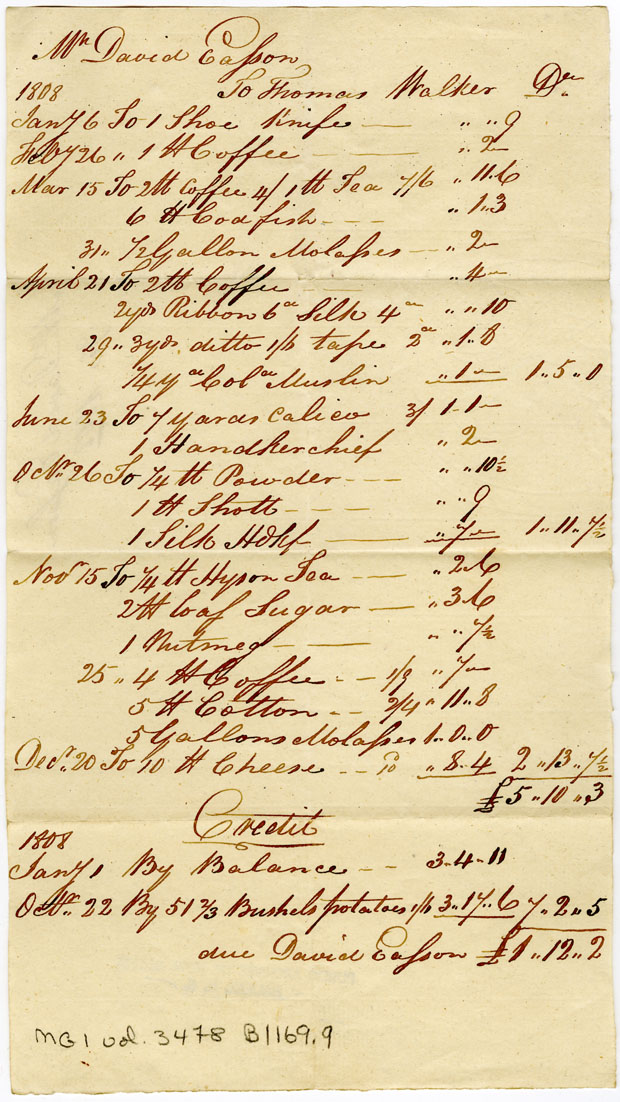 Mr David Easson
To Thomas Walker Dr
1808
Jany 6 To 1 Shoe Knife — " " 9
Feby 26 " 1 ℔ Coffee — " 2 —
Mar 15 To 2 ℔ Coffee 4/ 1 ℔ Tea 7/6 " 11 " 6
6 ℔ Codfish - - - " 1 " 3
31 " 1/2 Gallon Molasses — " 2 —
April 21 To 2 ℔ Coffee — " 4 —
2 yds Ribbon 6d Silk 4d " " 10
29 " 3 yds ditto 1/6 tape 2d " 1 " 8
1/4 yd Cold Muslin " 1 — 1 " 5 " 0
June 23 To 7 yards Calico 3/ 1 " 1 —
1 Handkerchief " 2 —
Octr 26 To 1/4 ℔ Powder — " " 10 1/2
1 ℔ Shott — " " 9
1 Silk Hdkf — " 7 — 1 " 11 " 7 1/2
Novr 15 To 1/4 ℔ Hyson Tea — " 2 " 6
2 ℔ loaf Sugar — " 3 " 6
1 Nutmeg — " " 7 1/2
25 " 4 ℔ Coffee - - 1/9 " 7 —
5 ℔ Cotton - - 2/4 " 11 " 8
5 Gallons Molasses 1 " 0 " 0
Decr 20 To 10 ℔ Cheese - - 10 " 8 " 4 2 " 13 " 7 1/2
£5 " 10 " 3
Credit
1808
Jany 1 By Balance - - 3 " 4 " 11
Octr 22 By 51 2/3 Bushels potatoes 1/6 3 " 17 " 6 7 " 2 " 5
due David Easson £1 " 12 " 2
MG1 vol. 3478 B1169.9